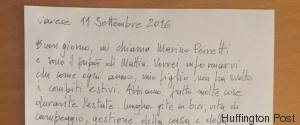 Varese 11 Settembre 2016
Buongiorno, mi chiamo Marino Peiretti
e sono il papà di Mattia. Vorrei informarvi
che come ogni anno, mio figlio non ha svolto
i compiti estivi. Abbiamo fatto molte cose
durante l'estate: lunghe gite in bici, vita di
campeggio, gestione della casa e della
Huffington Post